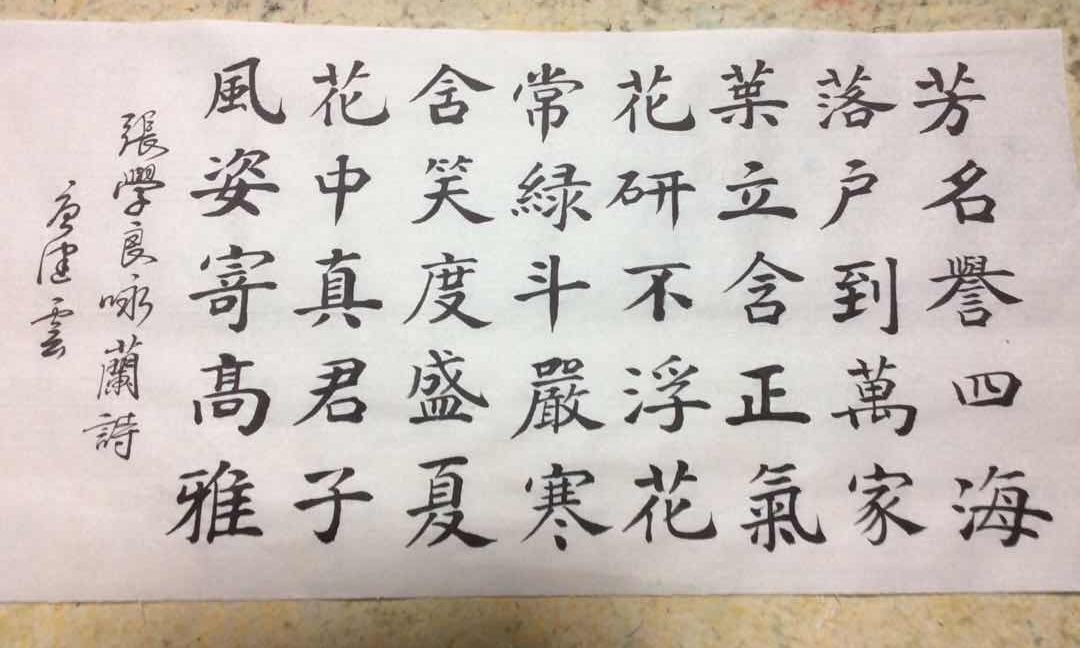 芳名譽四海
落户到萬家
葉立含正氣
花研不浮花
常綠斗嚴寒
舍笑度盛夏
花中真君子
風姿寄髙雅
張學良咏蘭詩
唐健雲